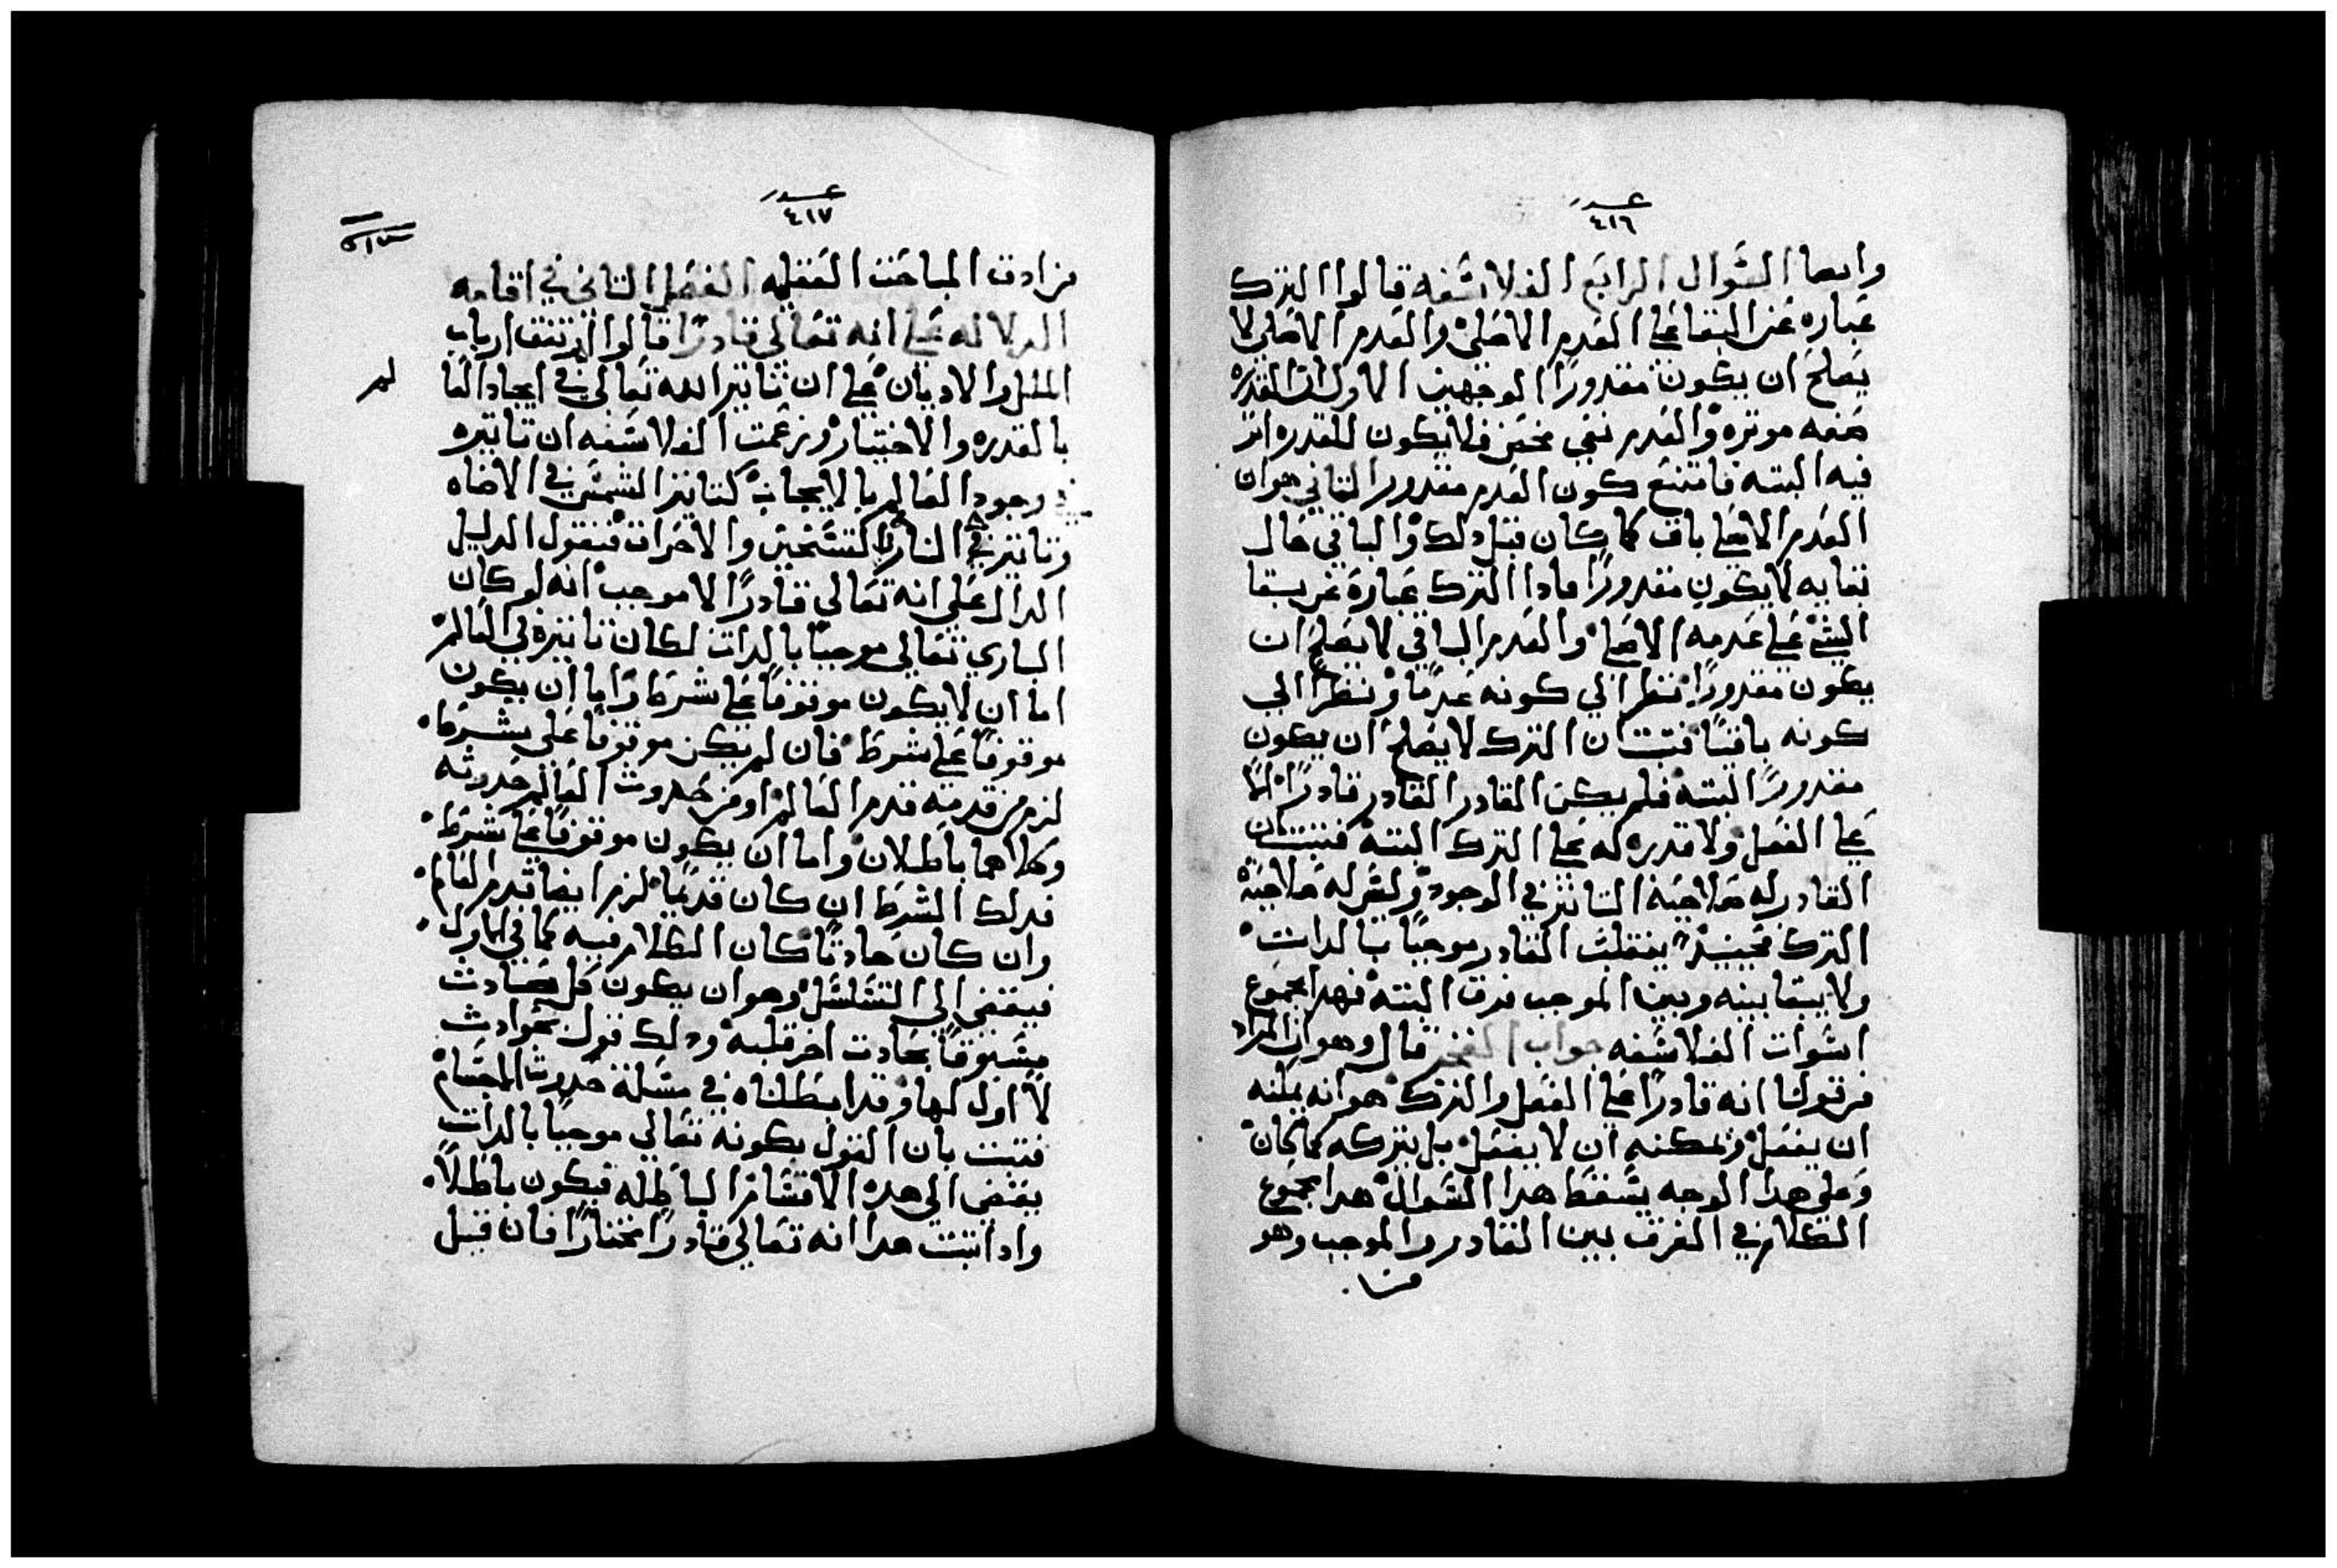 عدد
٤١٦
وايضا السوال الرابع الفلاسفه قالوا الترك
عباره عن البقا علي العدم الاصلي والعدم الاصلي لا
يصلح ان يكون مقدورًا لوجهين الاول ان القدره
صفه موثره والعدم نفي محض فلا يكون للقدره اثر
فيه البته فامتنع كون العدم مقدورا الثاني هو ان
العدم الاصلي باق كما كان قبل دلك والباقي حال
بقايه لا يكون مقدورًا فادا الترك عبارة عن بقا
الشي علي عدمه الاصلي والعدم الباقي لا يصلح ان
يكون مقدورًا نظرا الي كونه عدمًا ونظرًا الي
كونه باقيًا فثبت ان الترك لا يصلح ان يكون
مقدورًا البته فلم يكن القادر القادر قادرًا الا
علي الفعل ولا قدره له علي الترك البته فثبت ان
القادر له صلاحية التاثير في الوجود وليس له صلاحية
الترك فحينيدٍ ينقلب القادر موجبًا بالدات
ولا يبقا بينه وبين الموجب فرق البته فهدا مجموع
اسوات الفلاسفه جواب الفخر قال وهو ان المراد
من قولنا انه قادرًا علي الفعل والترك هو انه يمكنه
ان يفعل ويمكنه ان لا يفعل بل يتركه كما كان
وعلي هدا الوجه يسقط هدا السوال هدا مجموع
الكلام في الفرق بين القادر والموجب وهو
من
عدد
٤١٧
من ادق المباحث العقليه الفصل الثاني في اقامه
الدلاله علي انه تعالي قادرًا قالوا اتفقت ارباب
الملل والاديان علي ان تاثير الله تعالي في ايجاد العا
لم
بالقدره والاختيار وزعمت الفلاسفه ان تاثيره
في وجود العالم بالايجاب كتاثير الشمس في الاضاه
وتاثير النار في التسخين والاحراق فنقول الدليل
الدال علي انه تعالي قادرًا لا موجب انه لو كان
الباري تعالي موجبًا بالدات لكان تاثيره في العالم
اما ان لا يكون موقوفًا علي شرط واما ان يكون
موقوفًا علي شرط فان لم يكن موقوفًا علي شرط
لزم من قدمه قدم العالم او من حدوث العالم حدوثه
وكلاهما باطلان واما ان يكون موقوفًا علي شرط
فدلك الشرط ان كان قديمًا لزم ايضا قدم العالم
وان كان حادثًا كان الكلام فيه كما في الاول
فيفضي الي التسلسل وهو ان يكون كل حادث
مسبوقًا بحادث اخر قبله ودلك قول بحوادث
لا اول لها وقد ابطلناه في مسلة حدوث الاجسام
فثبت بان القول بكونه تعالي موجبًا بالدات
يفضي الي هده الاقسام الباطله فيكون باطلاً
وادا ثبت هدا انه تعالي قادرًا مختارًا فان قيل